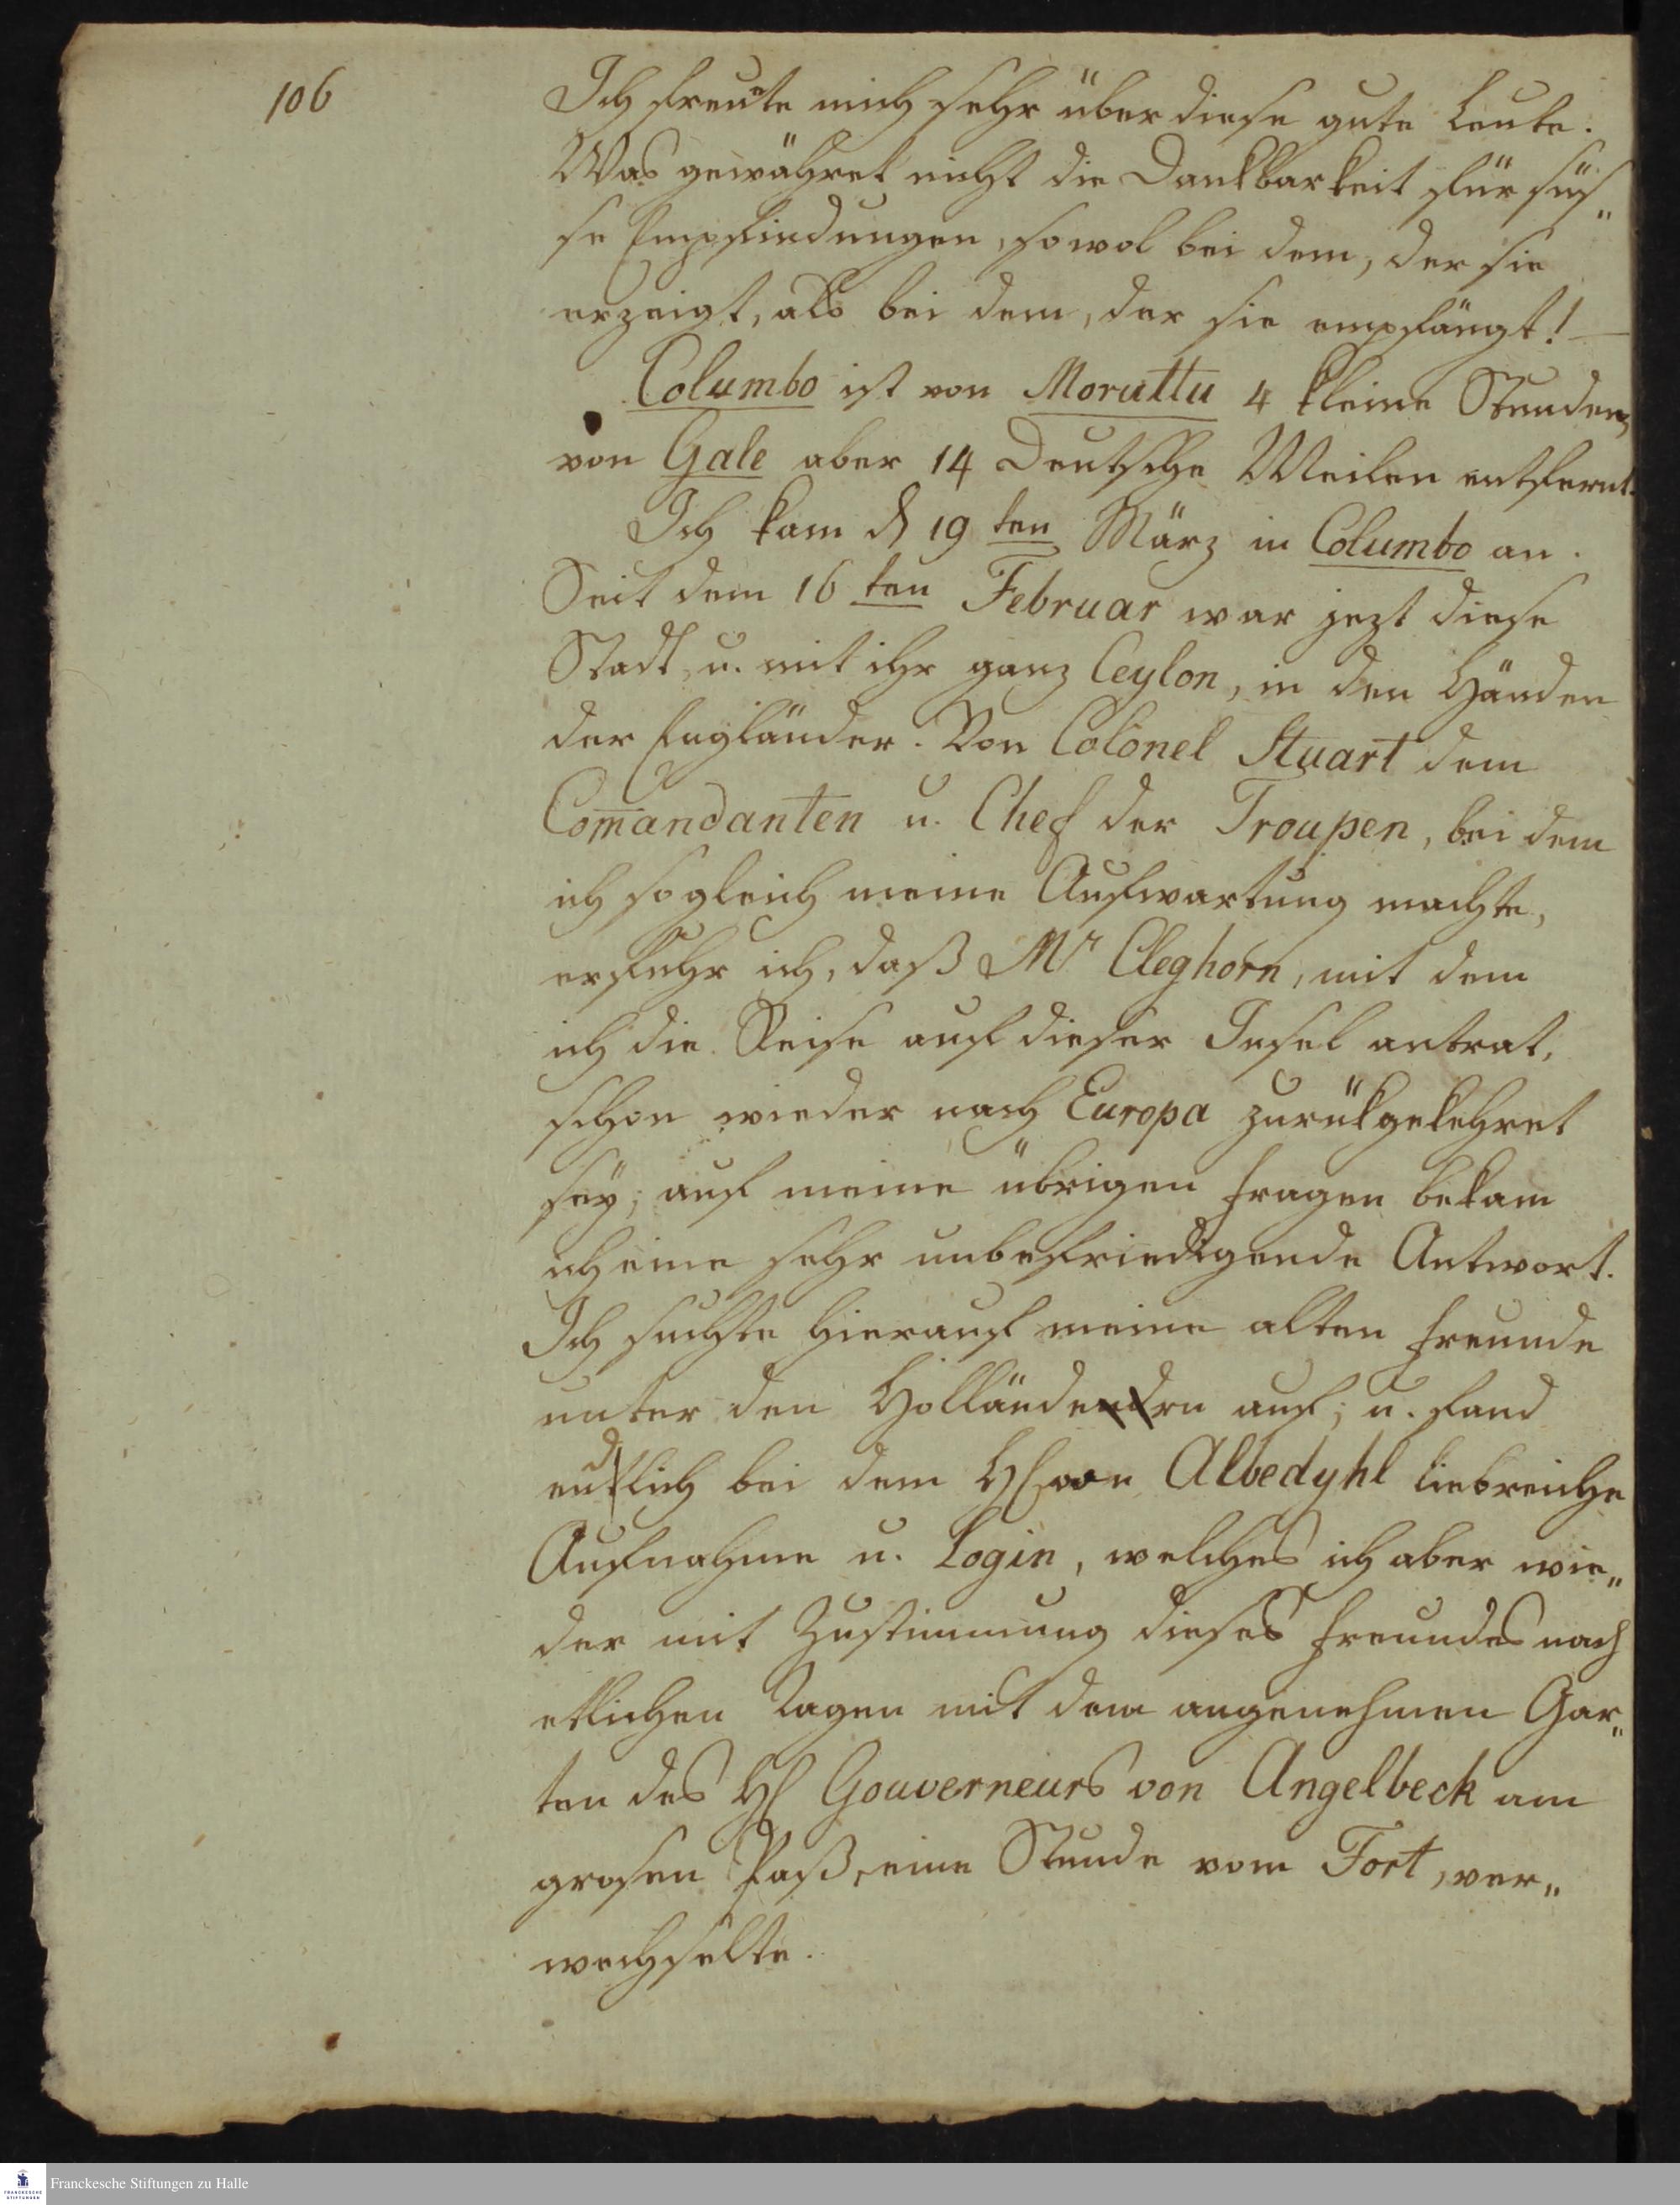 106
Ich freute mich sehr über diese gute Leute.
Was gewähret nicht die Dankbarkeit für süs„
se Empfindungen, sowol bei dem, der sie
erzeigt, als bei dem, der sie empfängt! —
Columbo ist von Moruttu 4 kleine Stunden,
von Gale aber 14 Deutsche Meilen entfernt.
Ich kam d 19 ten März in Columbo an.
Seit dem 16 ten Februar war jezt diese
Stadt, u. mit ihr ganz Ceylon, in den Händen
der Engländer. Von Colonel Stuart dem
Com̄andanten u. Chef der Troupen, bei dem
ich sogleich meine Aufwartung machte,
erfuhr ich, daß Mr Cleghorn, mit dem
ich die Reise auf dieser Insel antrat,
schon wieder nach Europa zurükgekehret
sey; auf meine übrigen Fragen bekam
ich eine sehr unbefriedigende Antwort.
Ich suchte hierauf meine alten Freunde
unter den Holländern auf; u. fand
endlich bei dem H von Albedyhl liebreiche
Aufnahme u. Login, welches ich aber wie„
der mit Zustimmung dieses Freundes nach
etlichen Tagen mit dem angenehmen Gar„
ten des H Gouverneurs von Angelbeck am
grosen Paß, eine Stunde vom Fort, ver„
wechselte.
Franckesche Stiftungen zu Halle
FRANCKESCHE
STIFTUNGEN